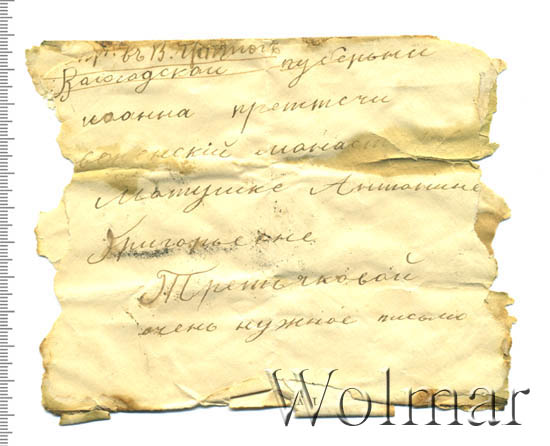 гр. въ В. Устюгъ
Вологодской губерніи
иоанна претттечи
монаст
Матушке Антонине
Григорьевне
Третьяковой
очень нужное письмо
Wolmar